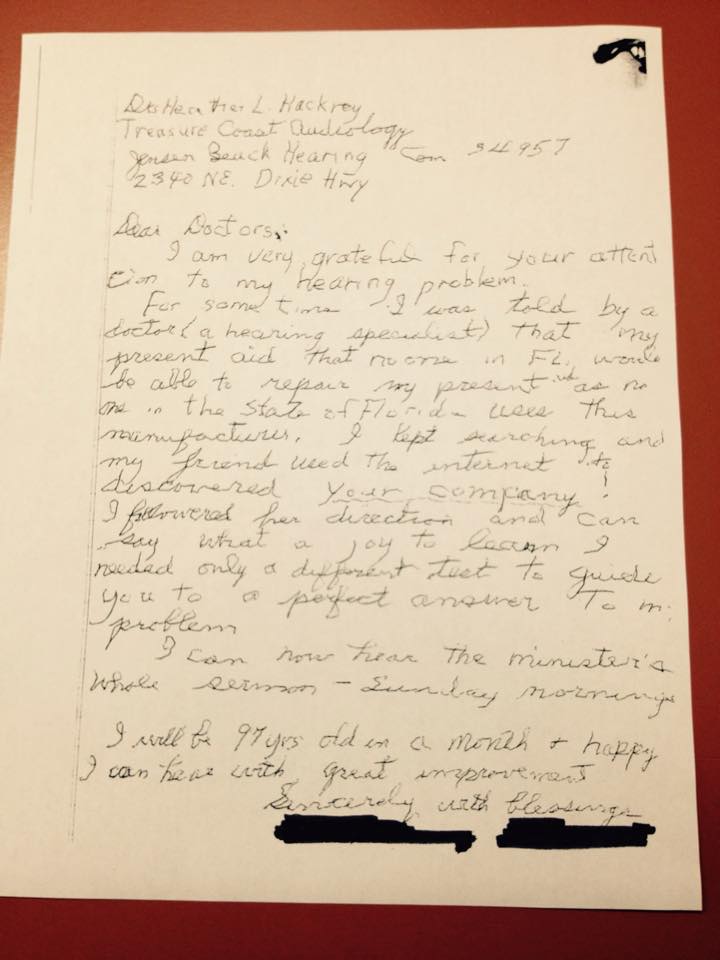 Drs Heather L. Hackney
Treasure Coast Audiology
Jensen Beach Hearing Com 34957
2340 NE. Dixie Hwy
Dear Doctors:
I am very grateful for your attent
tion to my hearing problem.
For some time I was told by a
doctor (a hearing specialist) that my
present aid that no one in FL, would
be able to repair my present as no
one in the State of Florida uses this
manufacturer. I kept searching and
my friend used the internet to
discovered your company!
I followed her direction and can
say what a joy to learn I
needed only a different test to guide
you to a perfect answer to my
problem
I can now hear the minister's
whole sermon - Sunday mornings
I will be 97 yrs old in a month + happy
I can hear with great improvement
Sincerely with blessings